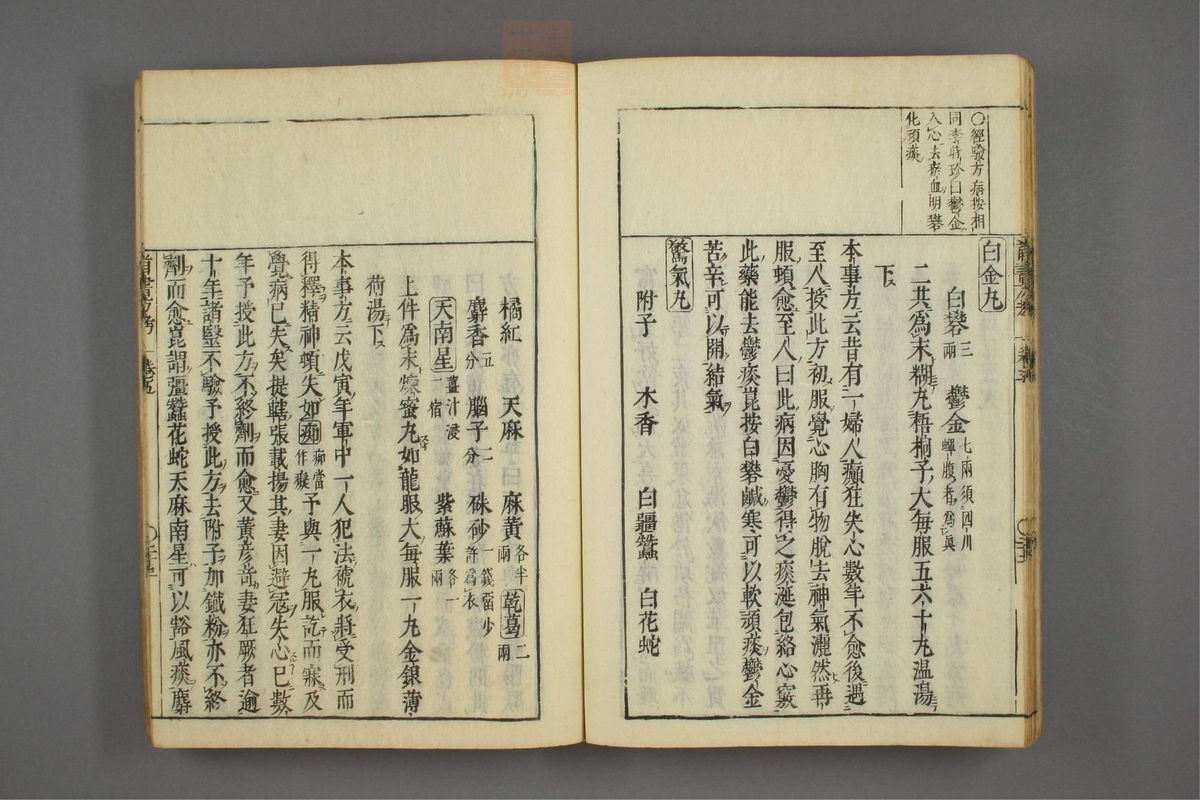 ○經驗方病按相
同李時珍曰鬱金
入心去惡血明礬
化頑痰
白金丸
白礬三兩 鬱金七兩須四川蟬腹者爲眞
二共爲末糊丸梧桐子大每服五六十丸温湯
下
本事方云昔有一婦人癲狂失心數年不愈後遇
至人授此方初服覺心胸有物脫去神氣灑然再
服頓愈至人曰此病因憂鬱得之痰涎包絡心竅
此藥能去鬱痰崑按白礬鹹寒可以軟頑痰鬱金
苦辛可以開結氣
驚氣丸
附子 木香 白疆蠶 白花蛇
橘紅 天麻 麻黃各半兩 乾葛二兩
麝香五分 腦子二分 硃砂一錢留少許爲衣
天南星薑汁浸一宿 紫蘇葉各一兩
上件爲末煉蜜丸如龍眼大每服一丸金銀薄
荷湯下
本事方云戊寅年軍中一人犯法褫衣將受刑而
得釋精神頓失如痴痴當作癡予與一丸服訖而寐及
覺病已失矣提轄張載揚其妻因避寇失心已數
年予授此方不終劑而愈又黃彥奇妻狂厥者逾
十年諸醫不驗予授此方去附子加鐵粉亦不終
劑而愈崑謂疆蠶花蛇天麻南星可以豁風痰麝